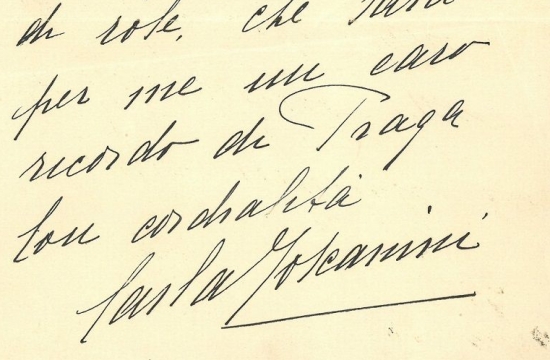 di rose, che sarà
per me un caro
ricordo di Praga
Con cordialità
Carla Toscanini